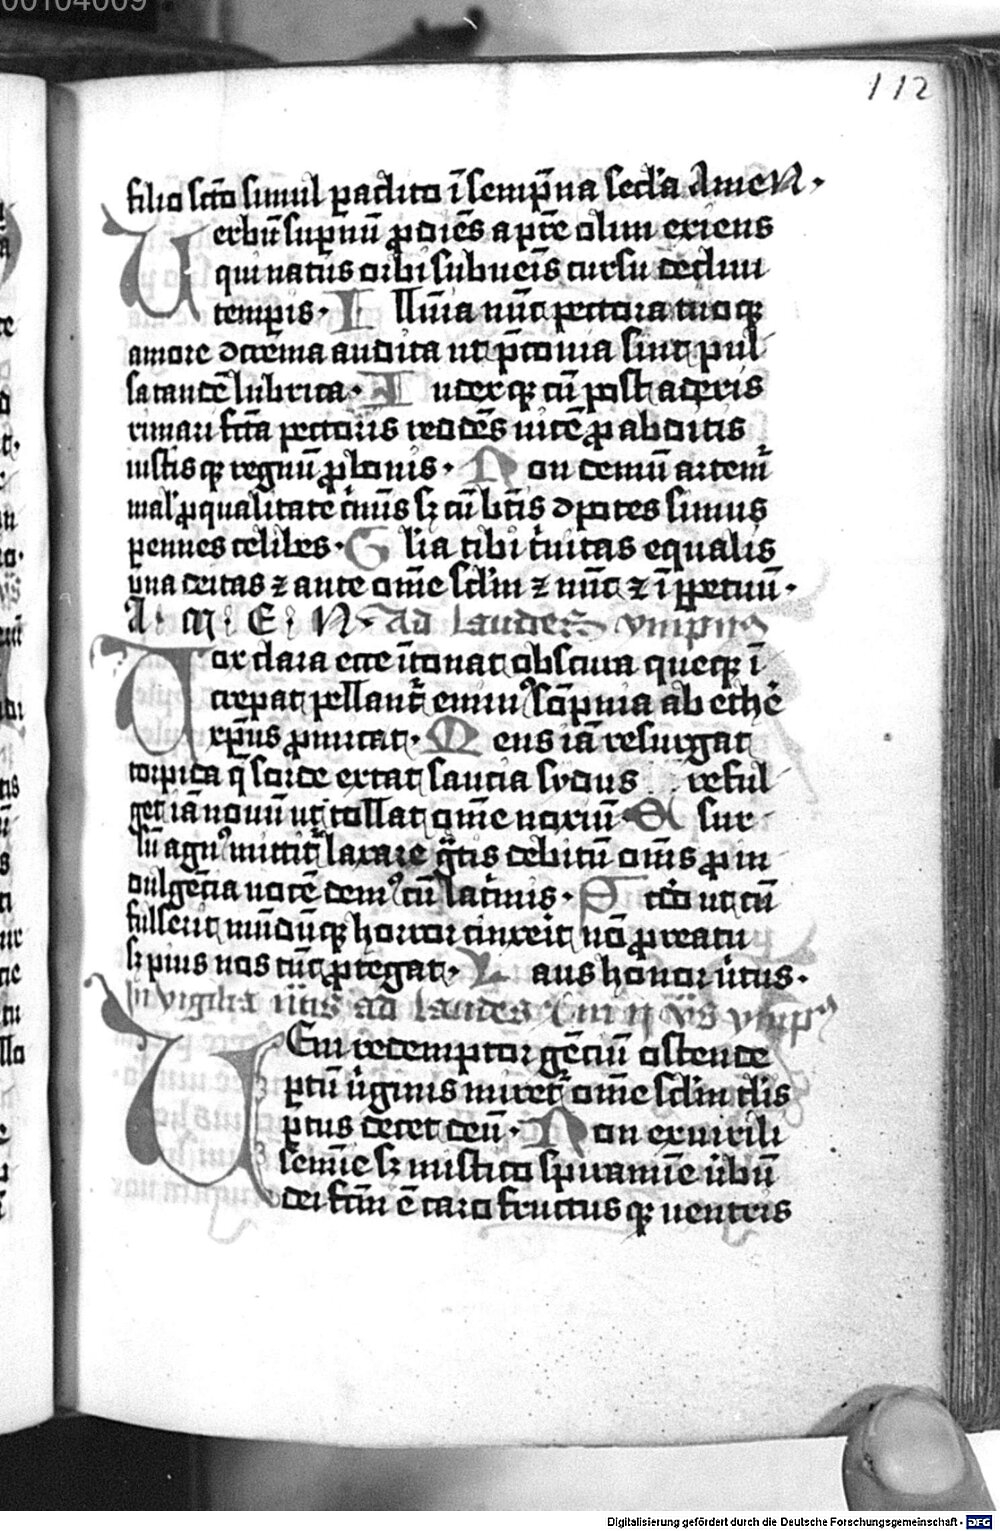 112
filio scō simul ꝑaclito ī semp̄na sec̄la Amen.
Uerbū suꝑnū ꝓdiēs a pr̄e olim exiens
qui natus orbi subueīs cursu decliui
temꝑis. Illūia nūc pectora tuoqꝫ
amore cōcrēma audita ut p̄conia sint pul
sa tandē lubrica. Iudexqꝫ cū post aderis
rimari fcā pectoris reddēs uicē ꝓ abditis
iustisqꝫ regnū ꝓ bonis. Non demū artemᷣ
mal' ꝓ qualitate c'mīs sꝫ cū bt̄is ꝯpotes simus
ꝑennes celibes. Glīa tibi t'nitas equalis
vna deitas ⁊ ante om̄e sc̄lm ⁊ nūc ⁊ ī ꝑpetuū.
A. M. E. N. Ad Laudes ympnꝰ
Uox clara ecce ītonat obscura queqꝫ ī
crepat pellantᷣ eminꝰ sōpnia ab ethe'
xp̄us ꝓmicat. Mens iā resurgat
torpida q̄ sorde extat saucia sydus reful
get iā nouū ut tollat om̄e noxiū. E sur
sū agnꝰ mittitᷣ laxare gᷓtis debitū om̄s ꝓ in
dulgēcia uocē demꝰ cū lac'mis. Scdo ut cū
fulserit mūdūqꝫ horror cinxeit nō ꝓ reatu
sꝫ pius nos tūc ꝓtegat. Laus honor u'tus.
In vigilia ad Laudes ympꝰ
UEni redemptor gēciū ostende
ꝑtū u'ginis miretᷣ om̄e sc̄lm t̄lis
ꝑtus decet deū. Non ex uirili
semīe sꝫ mistico spiramīe u'bū
dei fcm̄ ē caro fructusqꝫ uentris
Digitalisierung gefördert durch die Deutsche Forschungsgemeinschaft - DFG